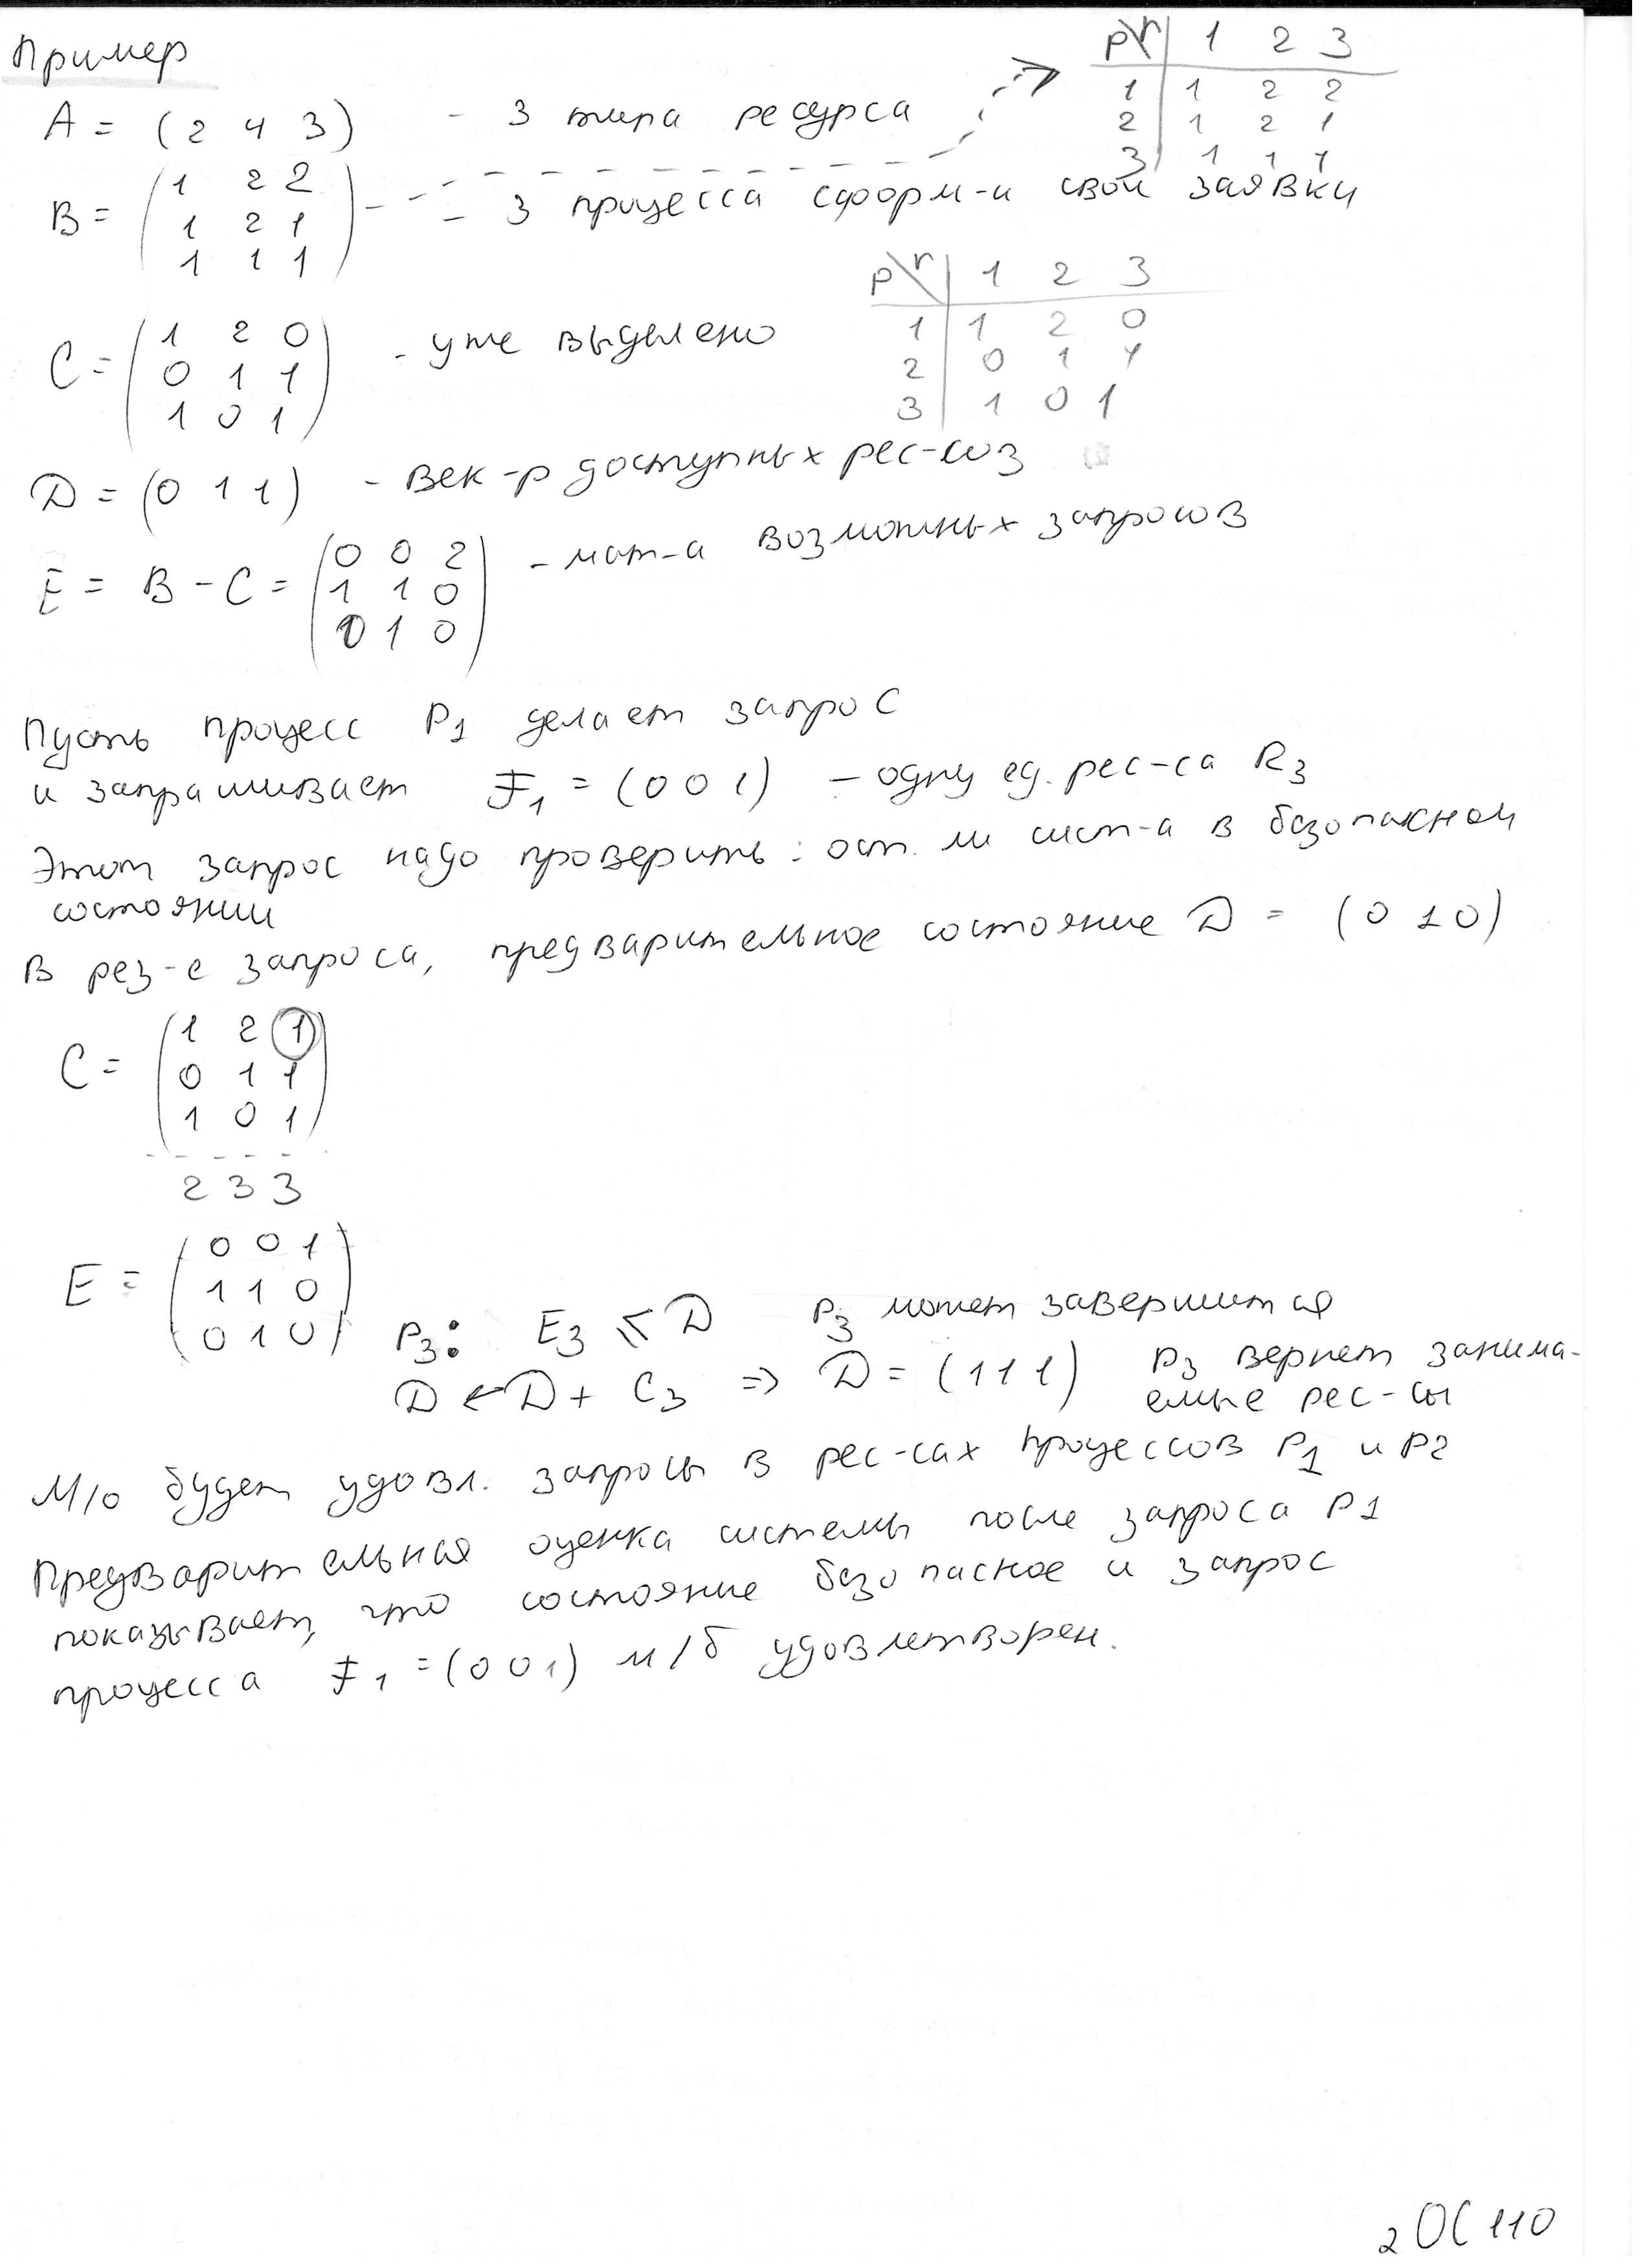 Пример
A = (2 4 3) - 3 типа ресурса
p\r | 1 2 3
1 | 1 2 2
2 | 1 2 1
3 | 1 1 1
B = (1 2 2
1 2 1
1 1 1) - 3 процесса сформ-и свои заявки
C = (1 2 0
0 1 1
1 0 1) - уже выделено
p\r | 1 2 3
1 | 1 2 0
2 | 0 1 1
3 | 1 0 1
D = (0 1 1) - век-р доступных рес-сов
E = B - C = (0 0 2
1 1 0
0 1 0) - мат-а возможных запросов
Пусть процесс P1 делает запрос
и запрашивает F1 = (0 0 1) - одну ед. рес-са R3
Этот запрос надо проверить: ост. ли сист-а в безопасном
состоянии
В рез-е запроса, предварительное состояние D = (0 1 0)
C = (1 2 1
0 1 1
1 0 1)
2 3 3
E = (0 0 1
1 1 0
0 1 0)
P3: E3 ≤ D P3 может завершится
D ← D + C3 ⇒ D = (1 1 1) P3 вернет занима-
емые рес-сы
М/о будет удовл. запросы в рес-сах процессов P1 и P2
Предварительная оценка системы после запроса P1
показывает, что состояние безопасное и запрос
процесса F1 = (0 0 1) м/б удовлетворен.
2 ОС 110